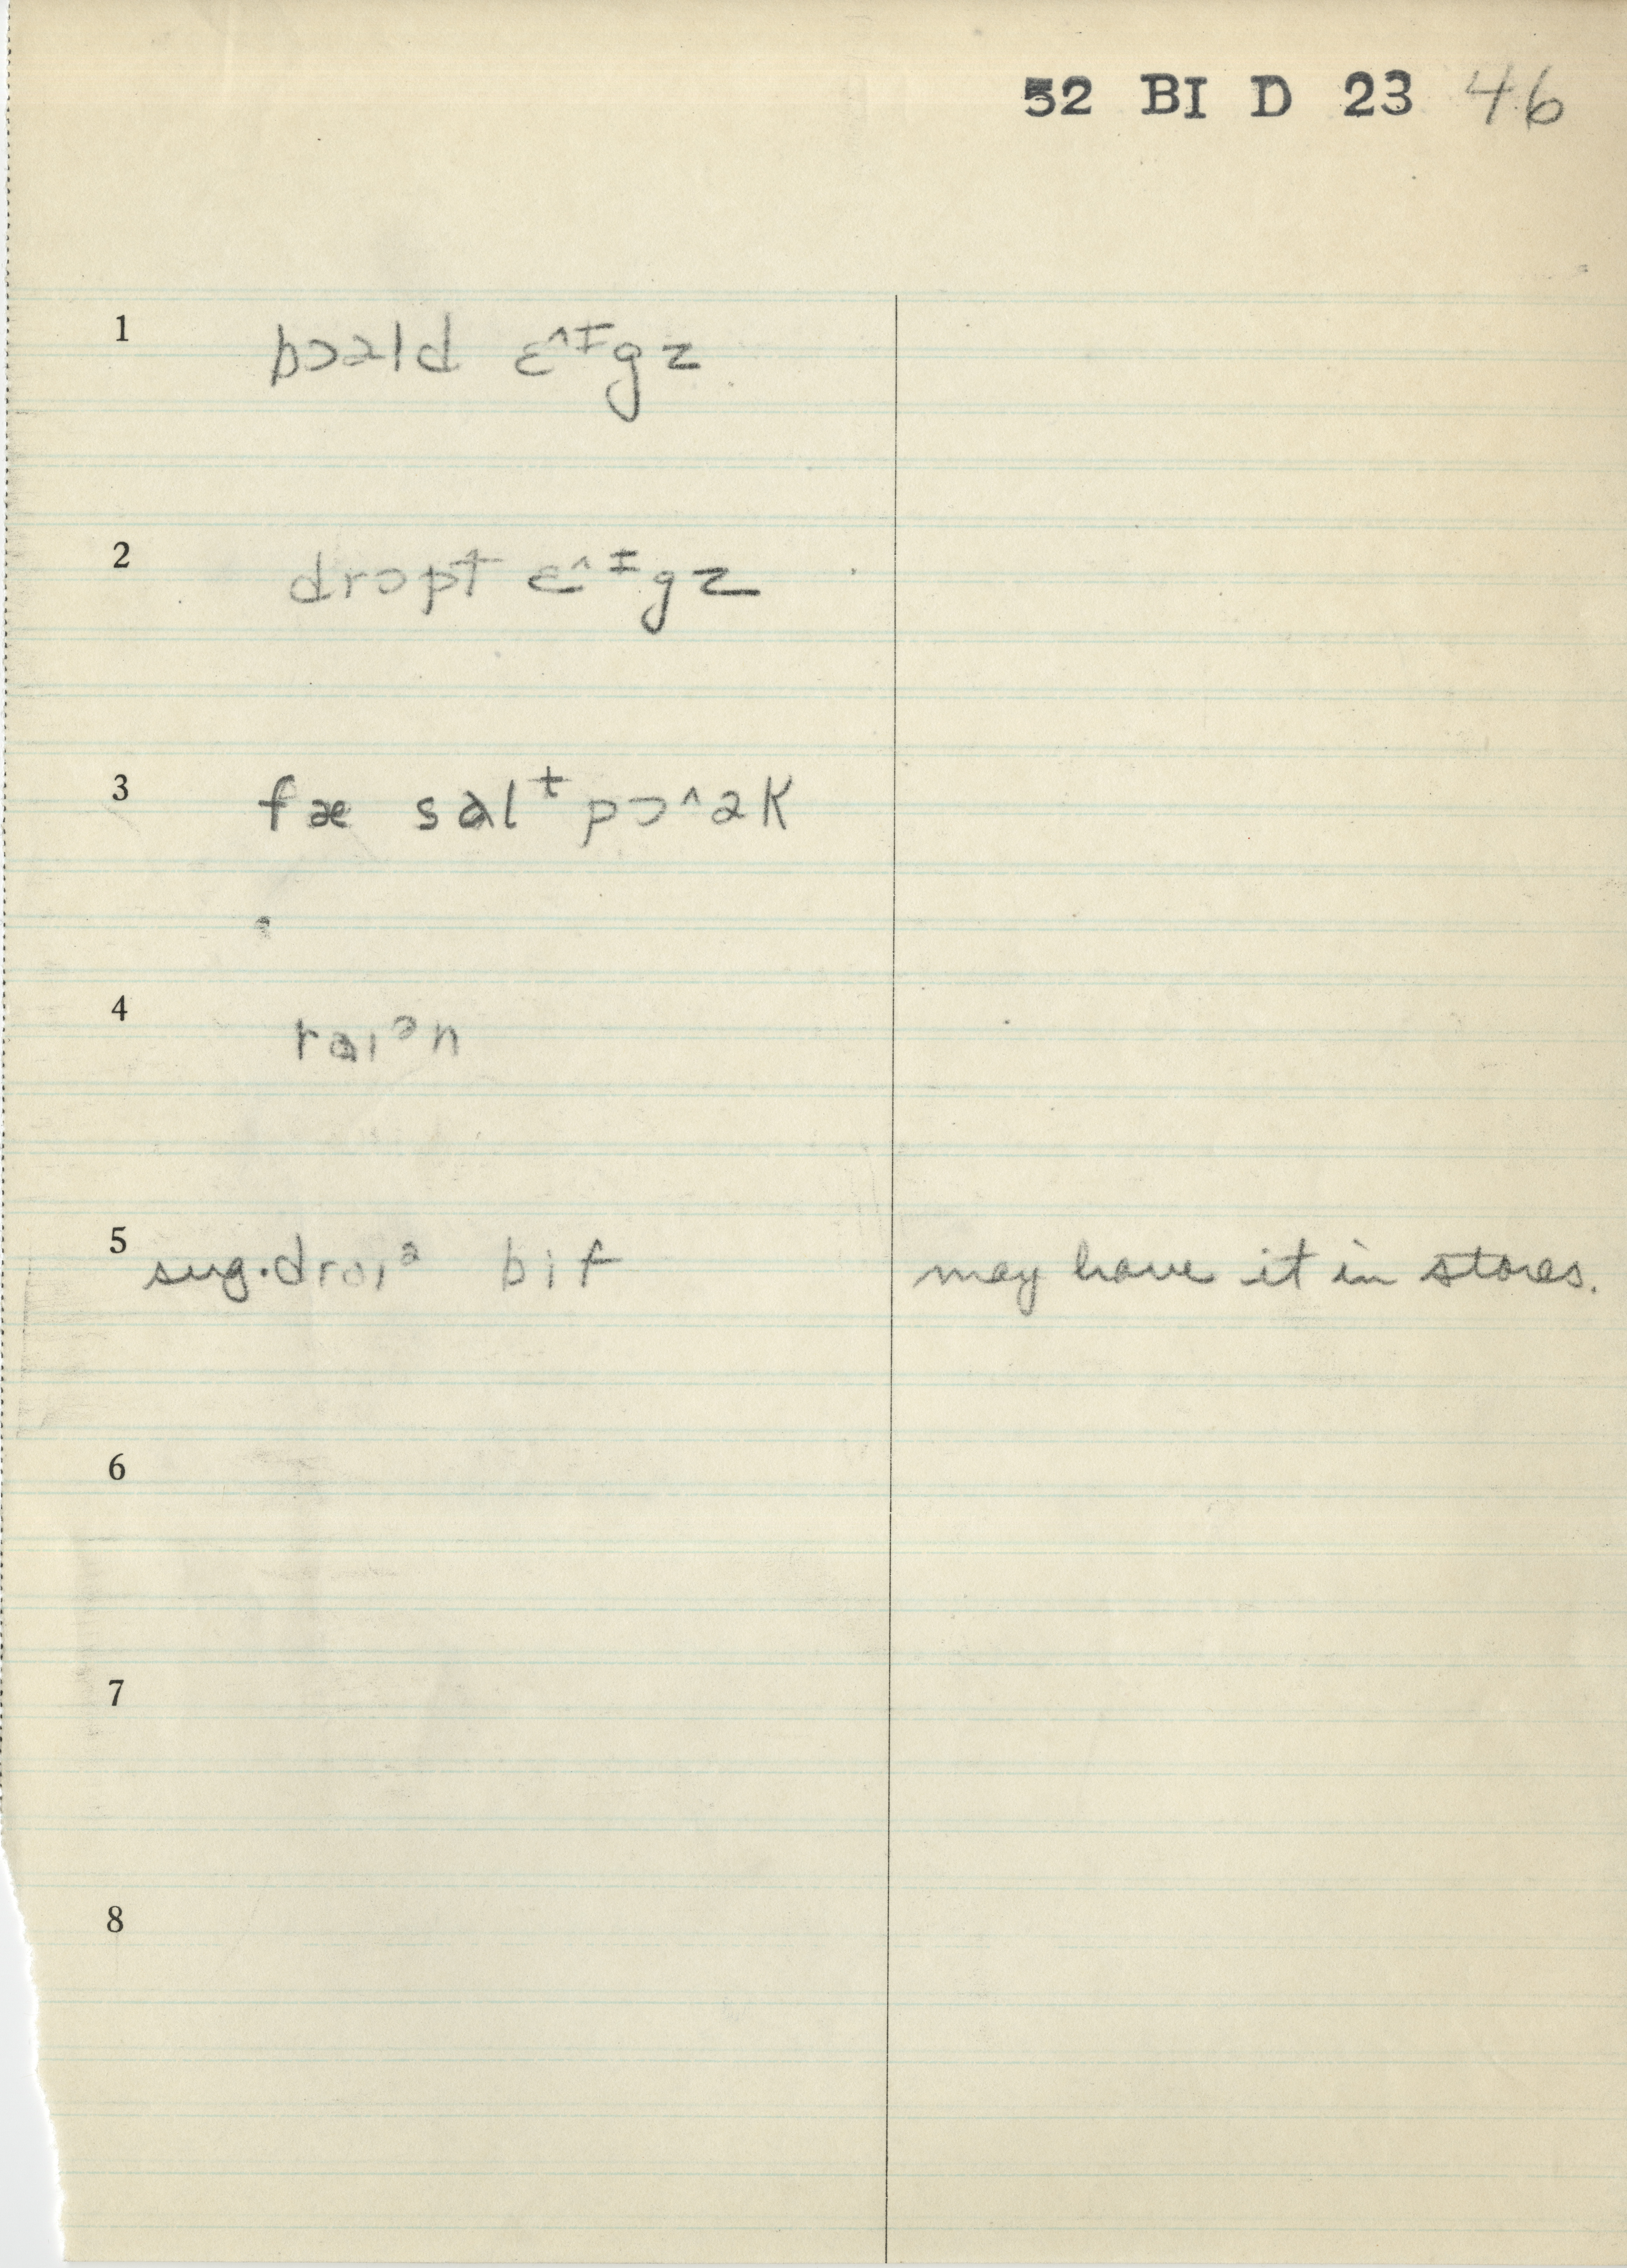 52 BI D 23 46
1 bɔəld ɛ^ɪgz
2 drɔpt ɛ^ɪgz
3 fæ salᵗ pɔ^ək
4 raɪᵊn
5 sug. draɪᵊ bif may have it in stores.
6
7
8